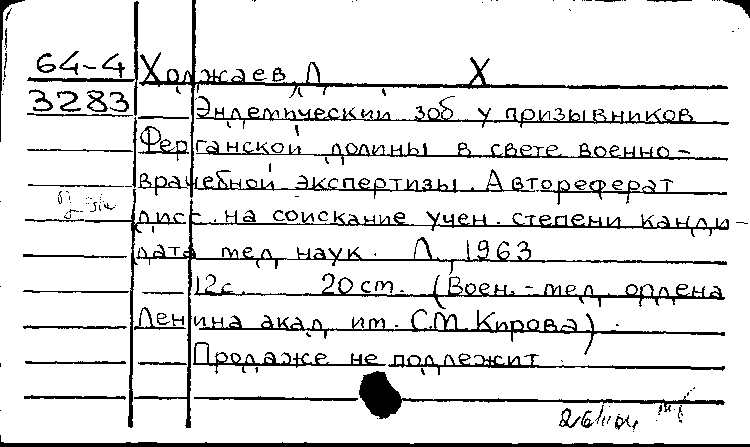 64-4 Ходжаев, Л. X
3283 Эндемический зоб у призывников
Ферганской долины в свете военно-
врачебной экспертизы. Автореферат
дисс. на соискание учен. степени канди-
дата мед. наук. Л., 1963
12с. 20 см. (Воен.-мед. ордена
Ленина акад. им. С.М. Кирова).
Продаже не подлежит.